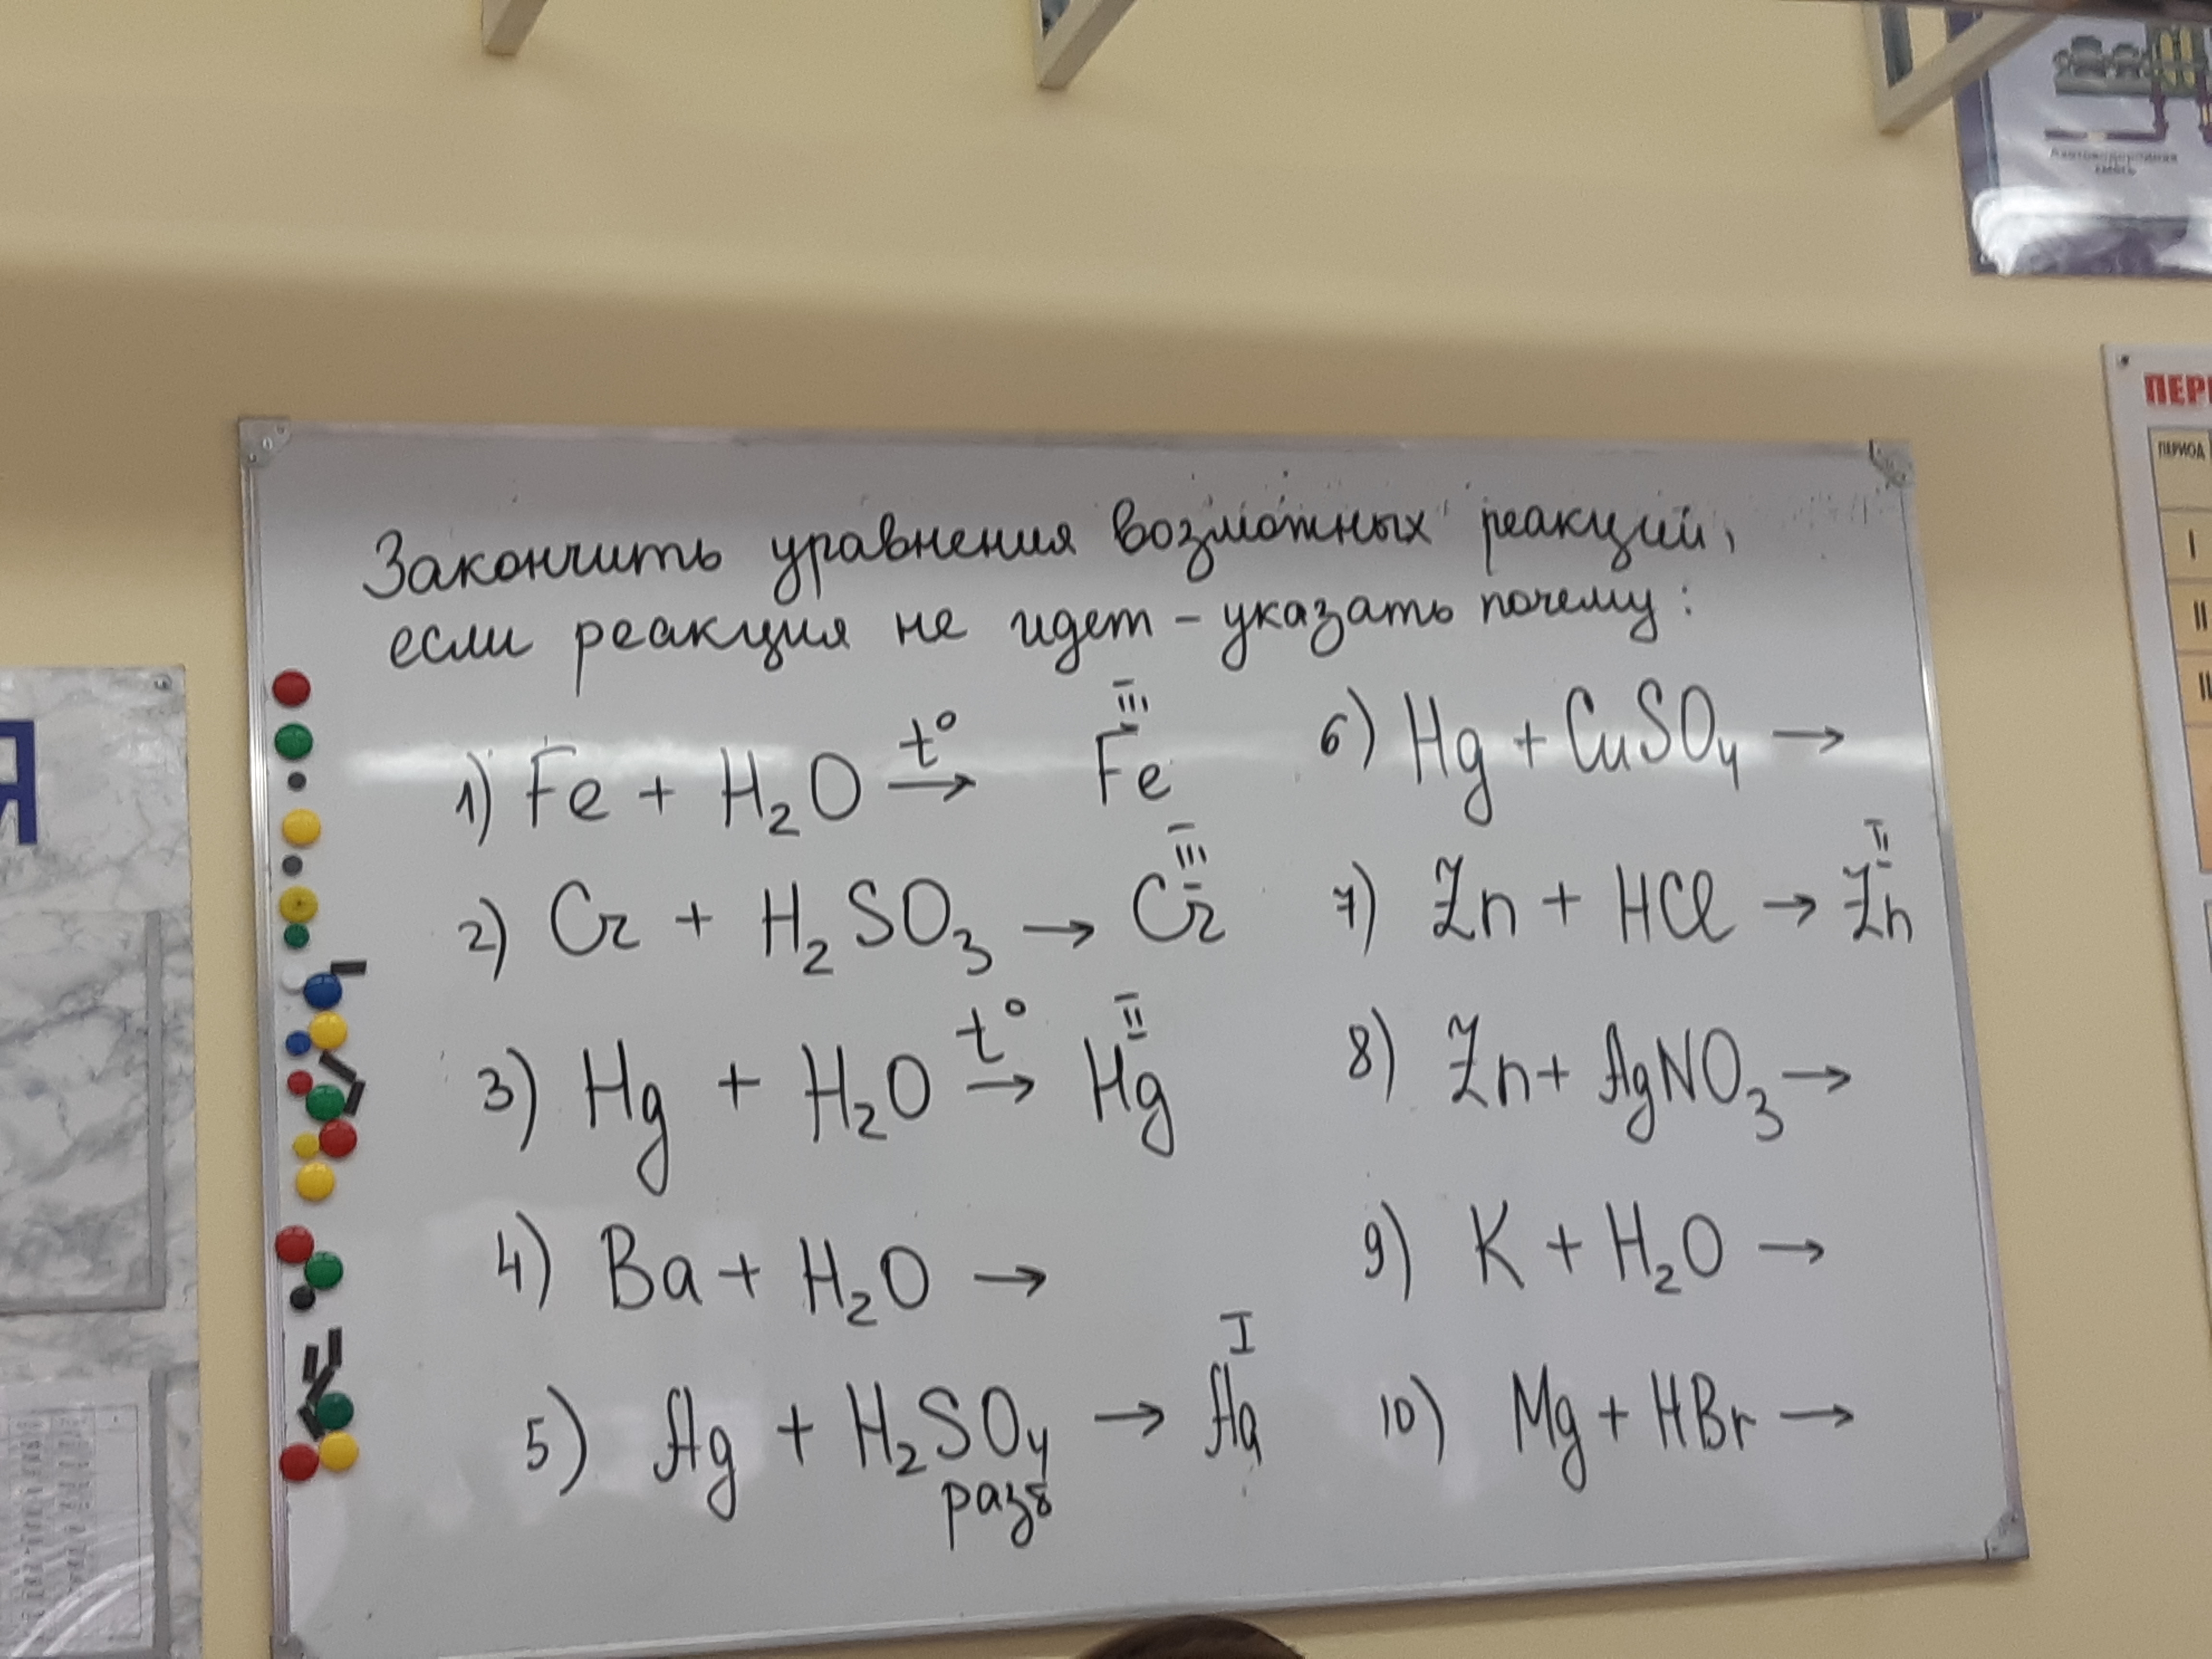 Закончить уравнения возможных реакций,
если реакция не идет - указать почему:
1) Fe + H₂O t° → Fe III
2) Cr + H₂SO₃ → Cr III
3) Hg + H₂O t° → Hg II
4) Ba + H₂O →
5) Ag + H₂SO₄ разб → Ag I
6) Hg + CuSO₄ →
7) Zn + HCl → Zn II
8) Zn + AgNO₃ →
9) K + H₂O →
10) Mg + HBr →
Я
ПЕРИОД
I
II